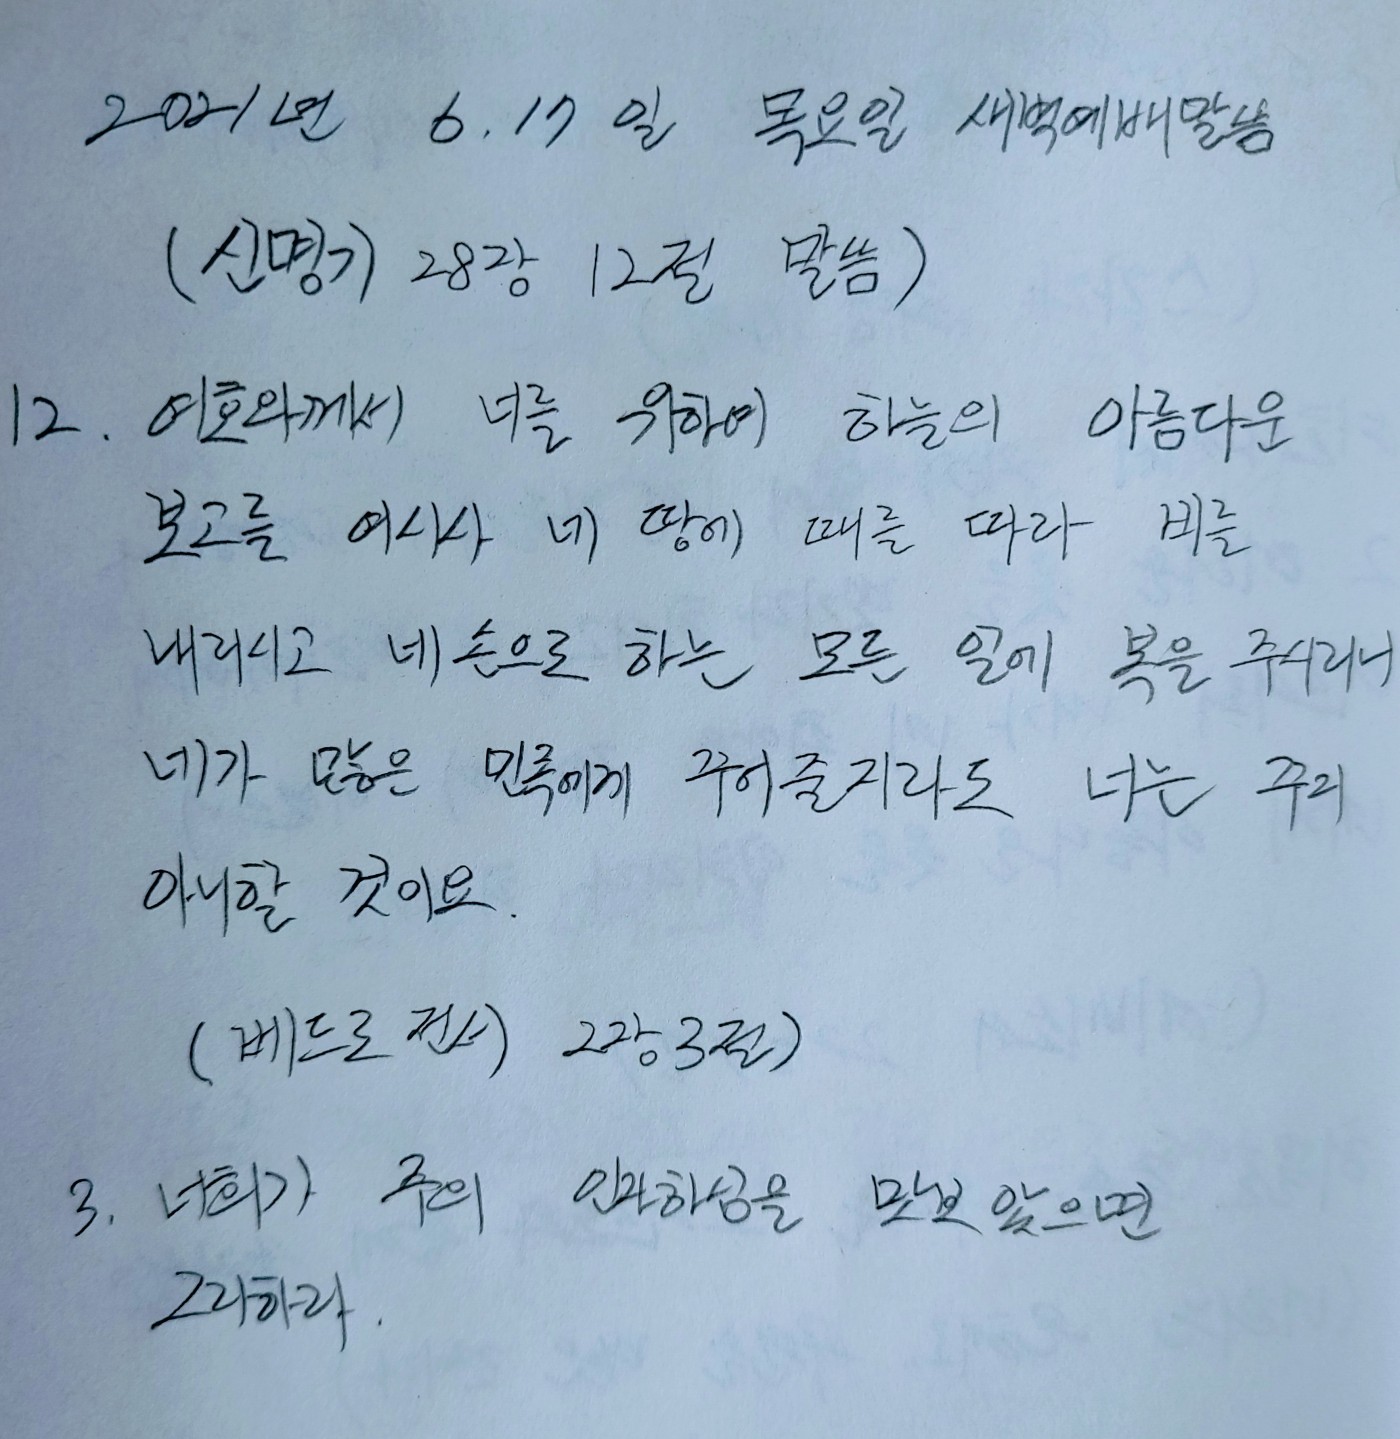 2021년 6.17일 목요일 새벽예배말씀
(신명기 28장 12절 말씀)
12. 여호와께서 너를 위하여 하늘의 아름다운
보고를 여시사 네 땅에 때를 따라 비를
내리시고 네 손으로 하는 모든 일에 복을 주시리니
네가 많은 민족에게 꾸어줄지라도 너는 꾸지
아니할 것이요.
(베드로전서) 2장3절)
3. 너희가 주의 인자하심을 맛보았으면
그리하라.